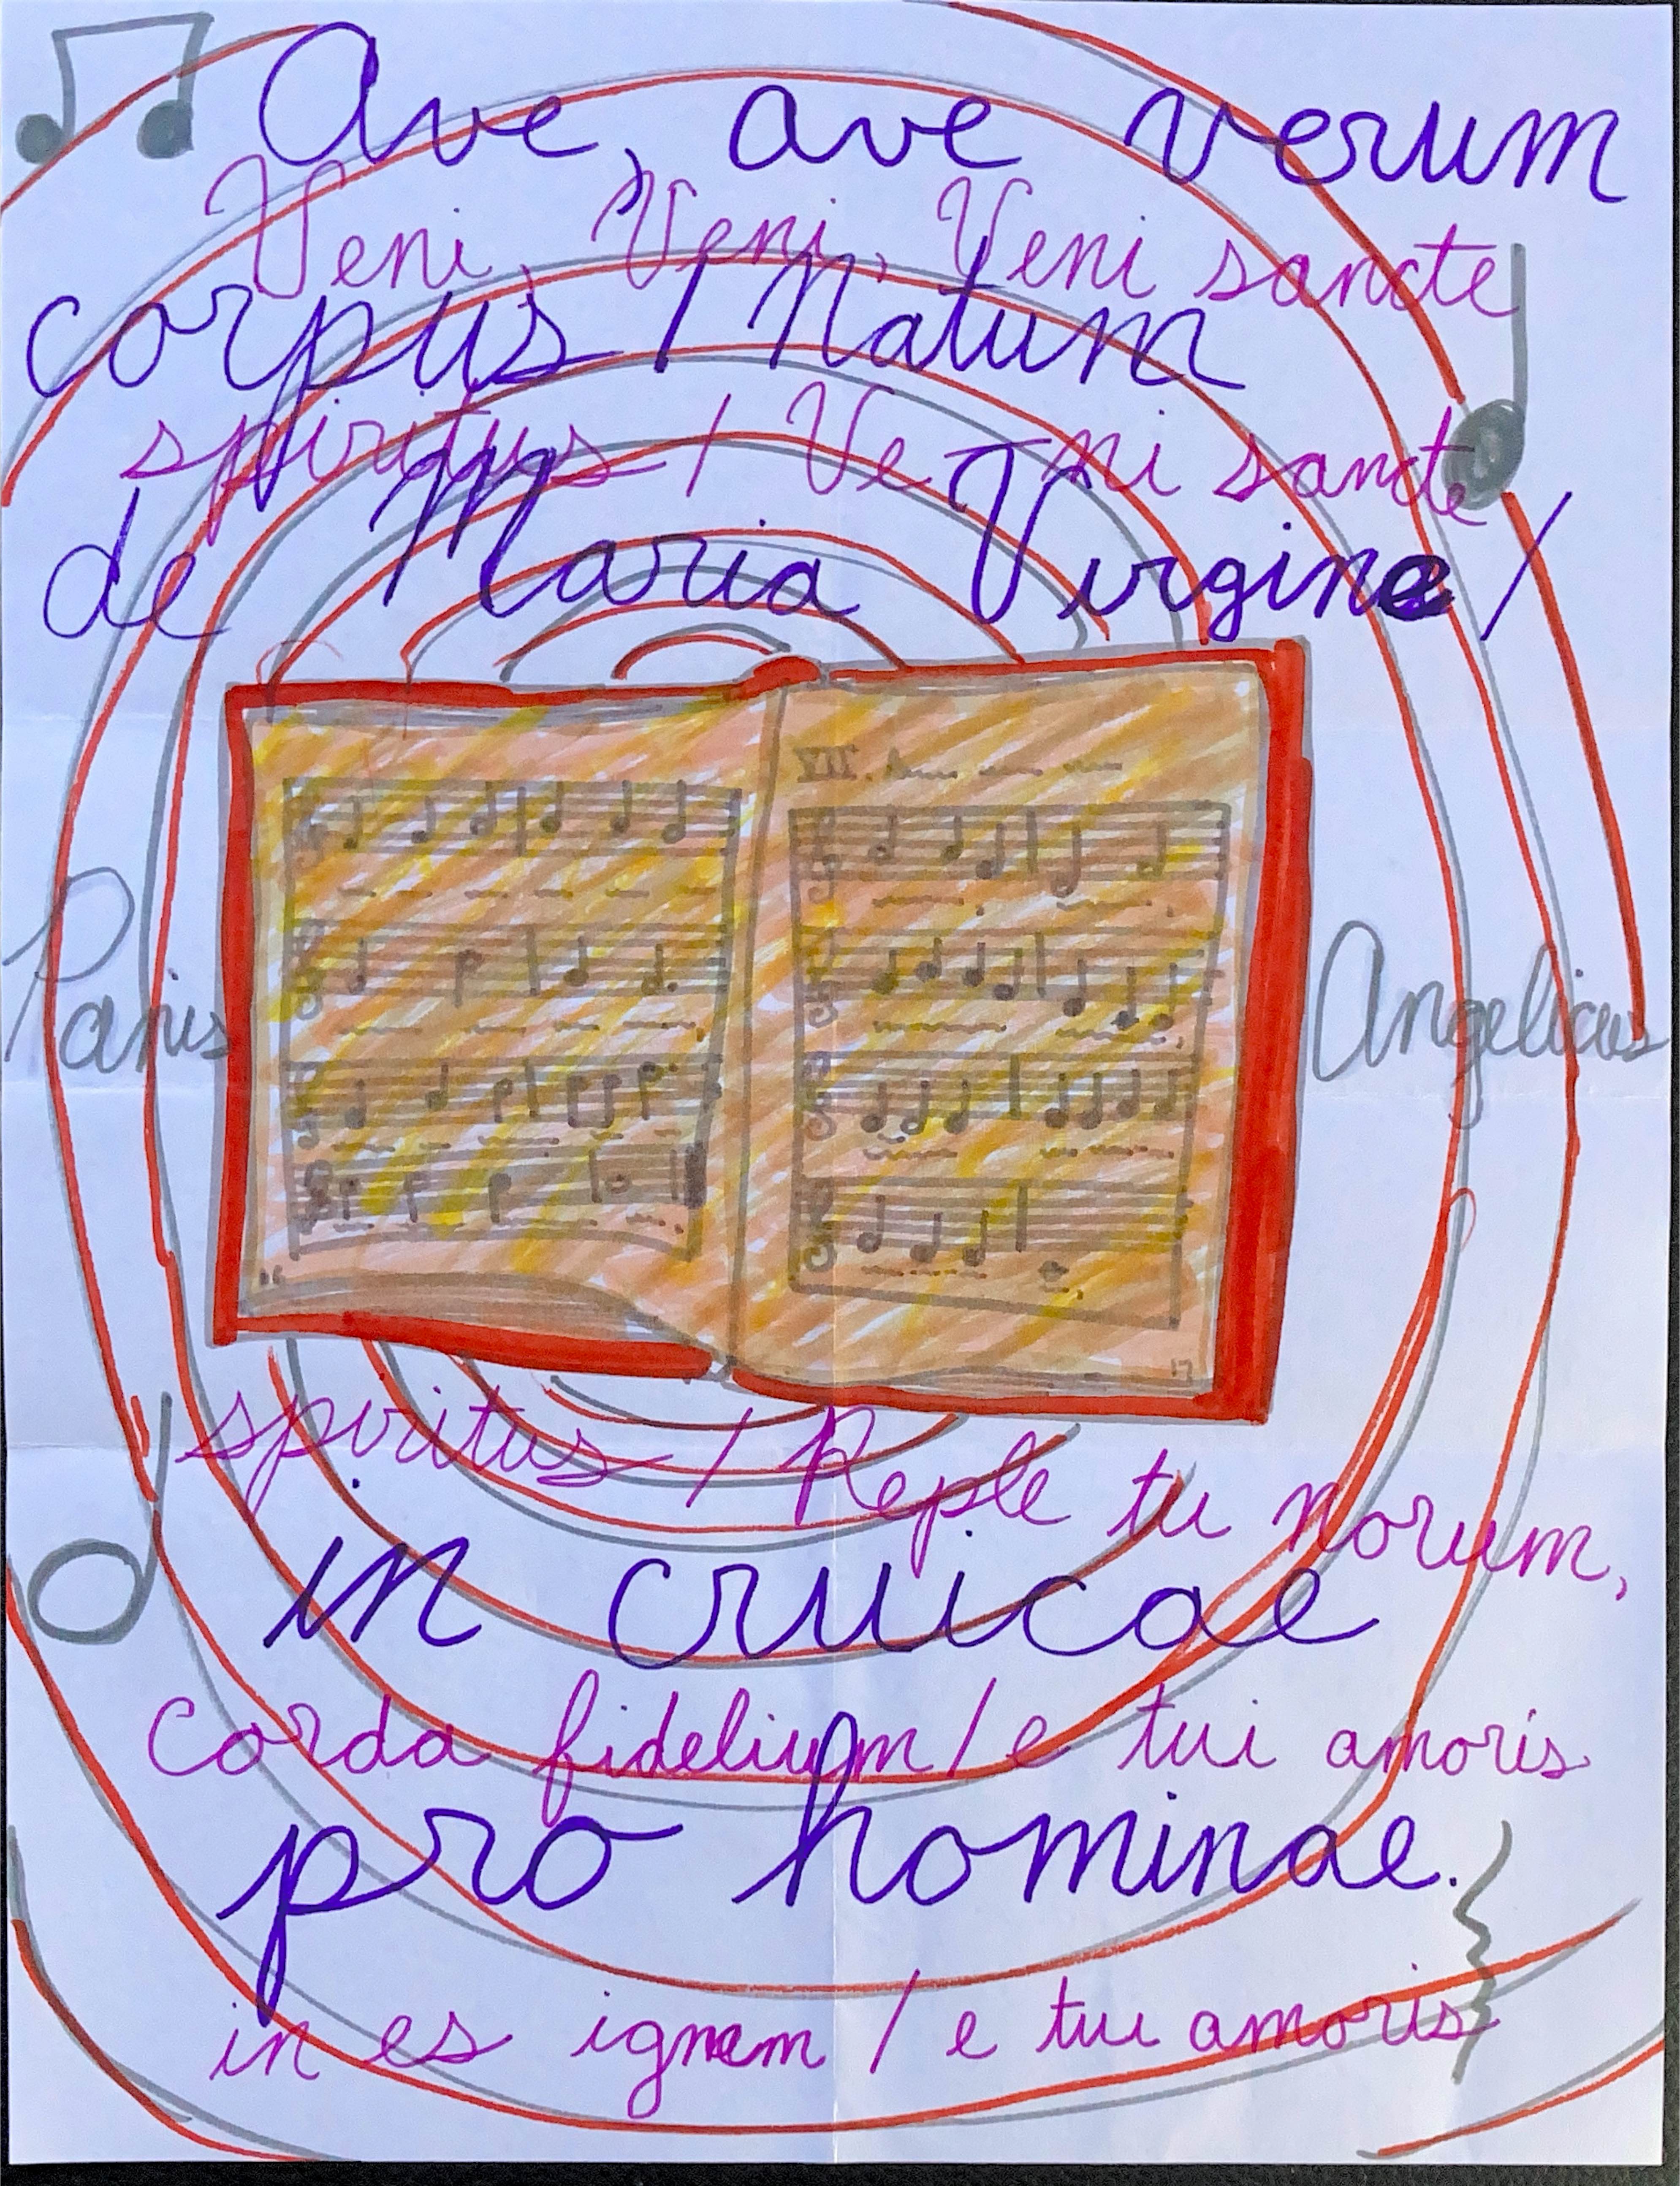 Ave, ave verum
Veni, Veni, Veni sancte
corpus / Natum
spiritus / Ve - ni sancte
de Maria Virgine /
VII.
Panis Angelicus
16
17
spiritus / Reple tu norum,
in cruicae
Corda fidelium / e tui amoris
pro hominae.
in es ignem / e tui amoris